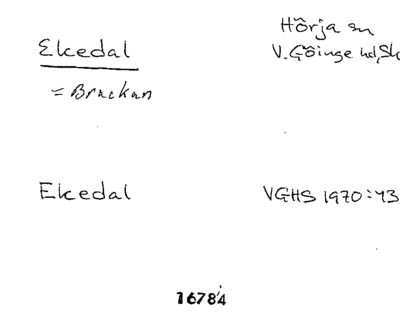 Ekedal
Hörja sn
V. Göinge hd, Sk
= Brackan
Ekedal
VGHS 1970:43
16784